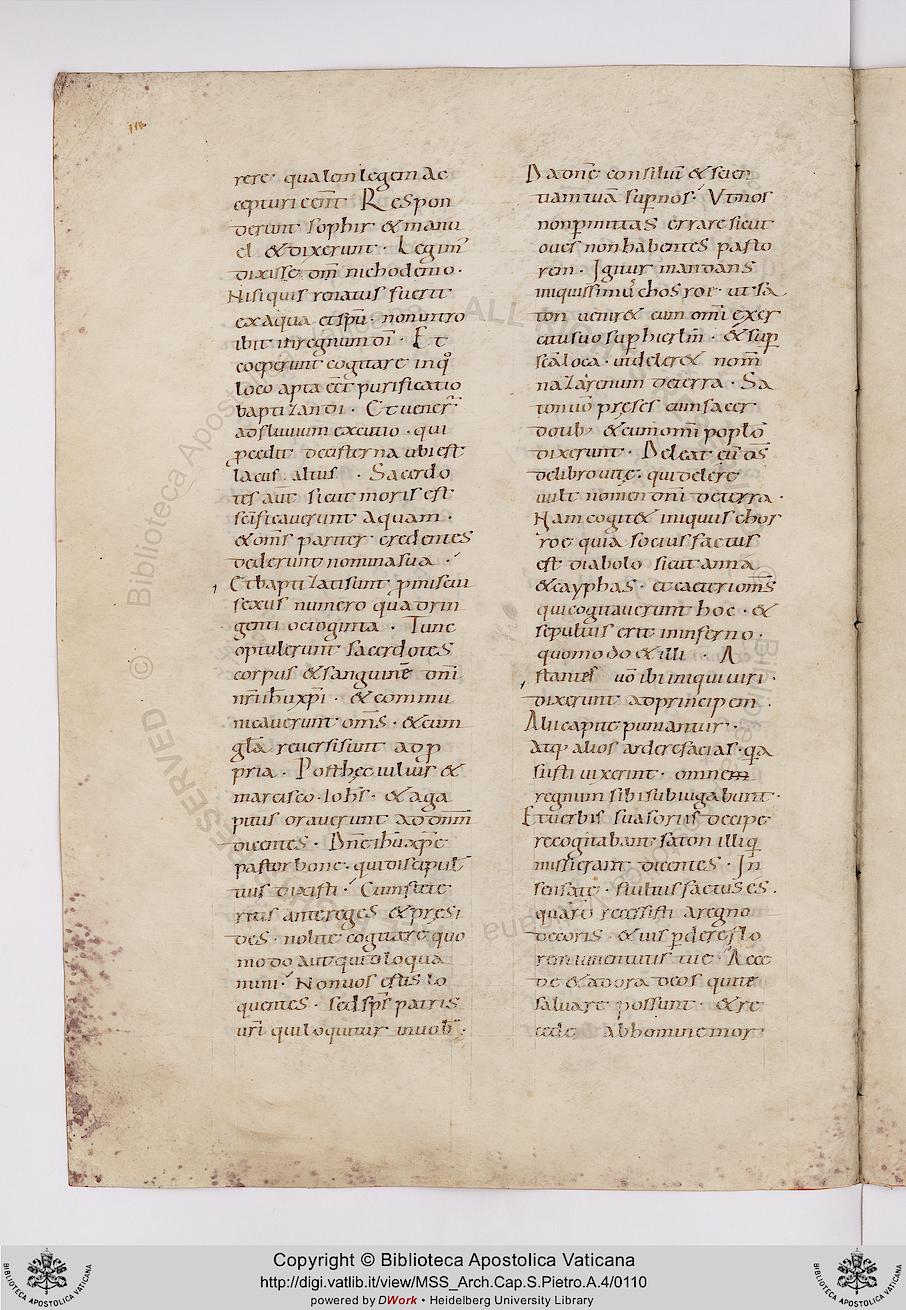 rere qualem legem ac
cepturi ceēnt Respon
derunt sophir & manu
el & dixerunt · Legim̄
dixisse dn̄m nichodemo ·
Nisi quis renatus fuerit
ex aqua et sp̄u · non intro
ibit in regnum dī · Et
coeperunt cogitare in q̊
loco apta eēt purificatio
baptizandi · Et uener̄
ad fluuium excutio · qui
p̱cedit decisterna ubi est
lacus altus · Sacerdo
tes aut sicut moris est
sc̄ificauerunt aquam ·
& om̄s pariter credentes
dederunt nomina sua ·
Et baptizati sunt p̱miscui
sexus numero quadrin
genti octoginta · Tunc
optulerunt sacerdotes
corpus & sanguinē dn̄i
nr̄i ihū xp̄i · & commu
nicauerunt om̄s · & cum
glā reuersi sunt ad p
pria · Post hęc iulius &
marcisco · Ioh̄s · & aga
pitus orauerunt ad dn̄m
dicentes · Dn̄e ihū xp̄e
pastor bone · qui discipul
tuis dixisti · Cum stete
ritis ante reges & presi
des · nolite cogitare quo
modo aut quid loqua
mini · Non uos estis lo
quentes · sed sp̄s patris
uri qui loquitur in uob ·
Da dn̄e consiliū & scien
tiam tuā sup̱ nos · Ut nos
non p̱mittas errare sicut
oues non habentes pasto
rem · Igitur mandans
iniquissimū chosroe · ut sa
ton uenir& cum omī exer
citu suo sup̱ hierl̄m · & sup̱
sc̄a loca · ut deler& nom̄
nazarenum de terra · Sa
ton uō preses cum sacer
dotib; & cum omī poplō
dixerunt · Deleat eū dȳs
de libro uitę · qui delere
uult nomen dn̄i de terra ·
Nam cogit& iniquus chos
roe quia socius factus
est diabolo sicut anna
& cayphas · et caeteri om̄s
qui cogitauerunt hoc · &
sepultus erit in inferno ·
quomodo & illi · A
stantes uō ibi iniqui uiri ·
dixerunt ad principem ·
Alii capite puniantur ·
atq; alios ardere facias · q̱a
si isti uixerint · omnem
regnum sibi subiugabunt ·
Et uerbis suasoriis decipe
re cogitabant saton illi q̱
missi erant dicentes · In
sensate · stultus factus es ·
quare recessisti a regno
decoris · & uis p̱dere flo
rem iuuentutis tuę · Acce
de & adora deos qui te
saluare possunt · & re
cede ab homine mor
Copyright © Biblioteca Apostolica Vaticana
http://digi.vatlib.it/view/MSS_Arch.Cap.S.Pietro.A.4/0110
powered by DWork • Heidelberg University Library